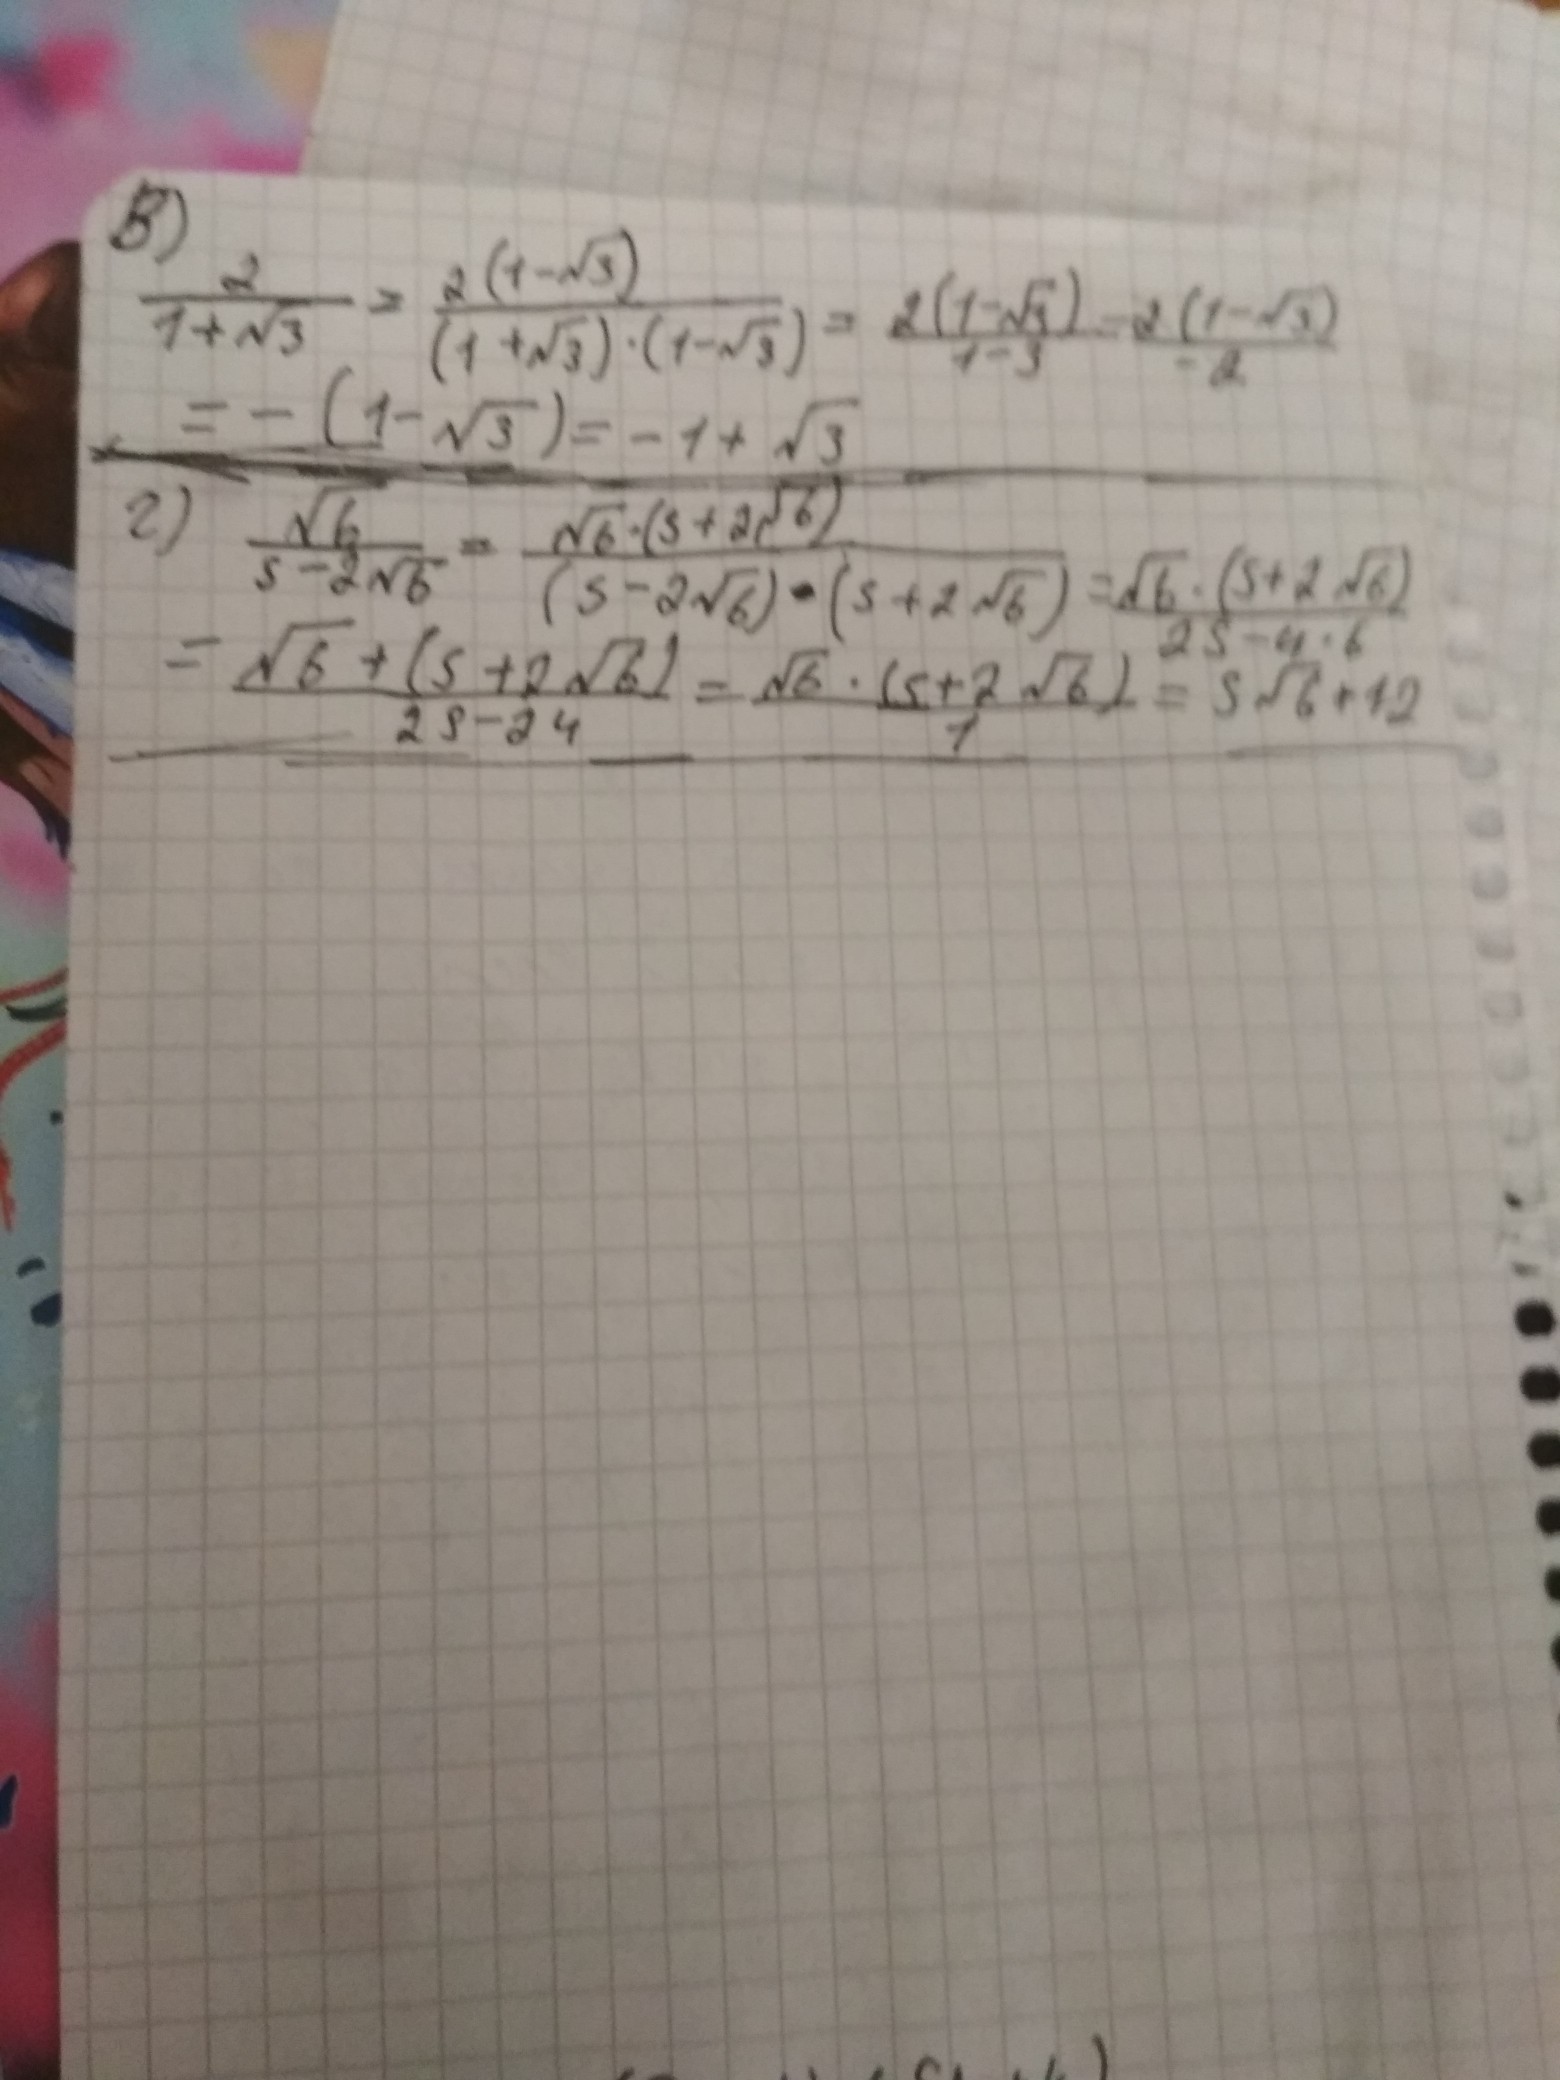 в)
2/(1+√3) = 2(1-√3)/((1+√3)·(1-√3)) = 2(1-√3)/(1-3) = 2(1-√3)/(-2)
= -(1-√3) = -1+√3
г) √6/(5-2√6) = √6·(5+2√6)/((5-2√6)·(5+2√6)) = √6·(5+2√6)/(25-4·6)
= √6+(5+2√6)/(25-24) = √6·(5+2√6)/1 = 5√6+12